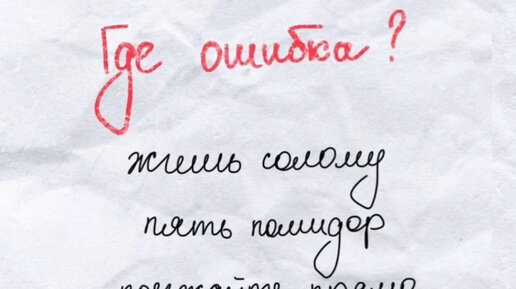 Где ошибка?
жгешь солому
пять помидор
прямо